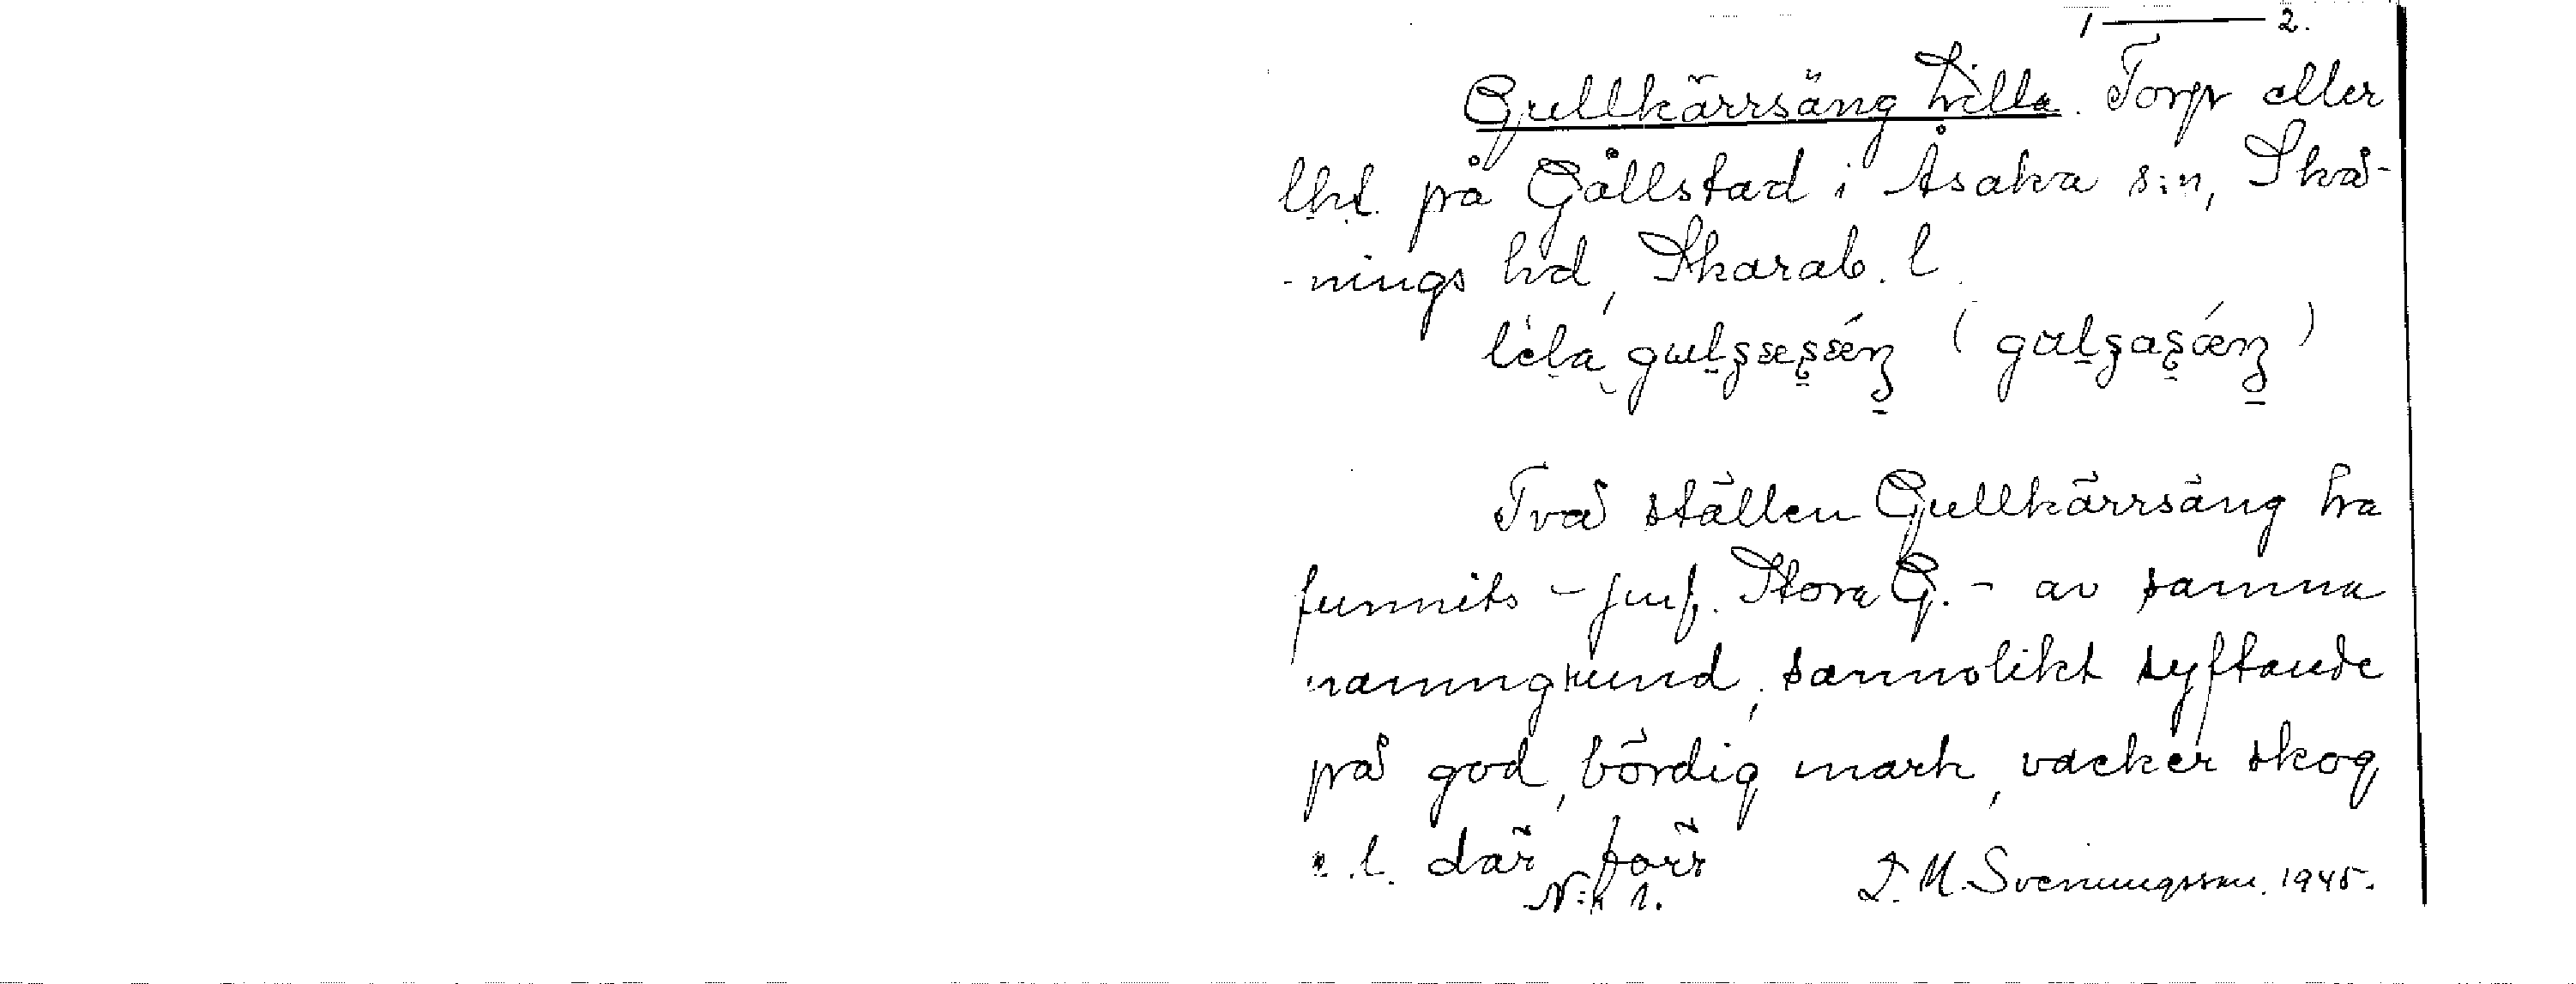 1 —— 2.
Gullkärrsäng Lilla. Torp eller
lht. på Gällstad i Åsaka s:n, Skå-
-nings hd, Skarab. l.
Två ställen Gullkärrsäng ha
funnits – jmf. Stora G. – av samma
namngrund, sannolikt syftande
på god, bördig mark, vacker skog
e. l. där förr
N:r 1. D. M. Svenungsson. 1945.